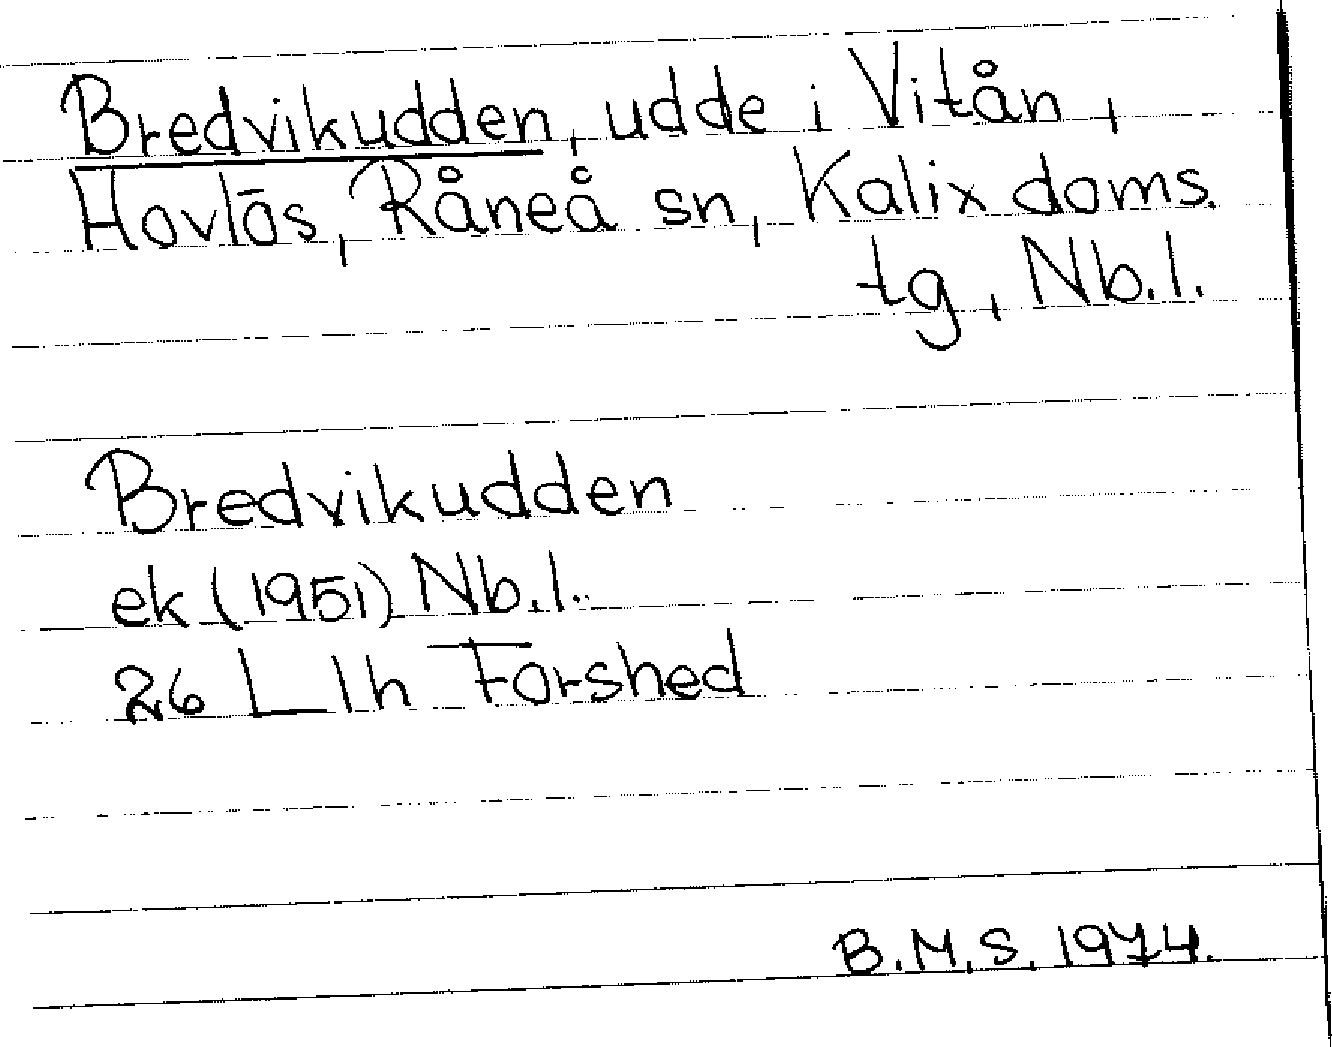 Bredvikudden, udde i Vitån,
Hovlös, Råneå sn, Kalix doms.
tg, Nb.l.
Bredvikudden
ek (1951) Nb.l.
26 L lh Forshed
B.M.S. 1974.